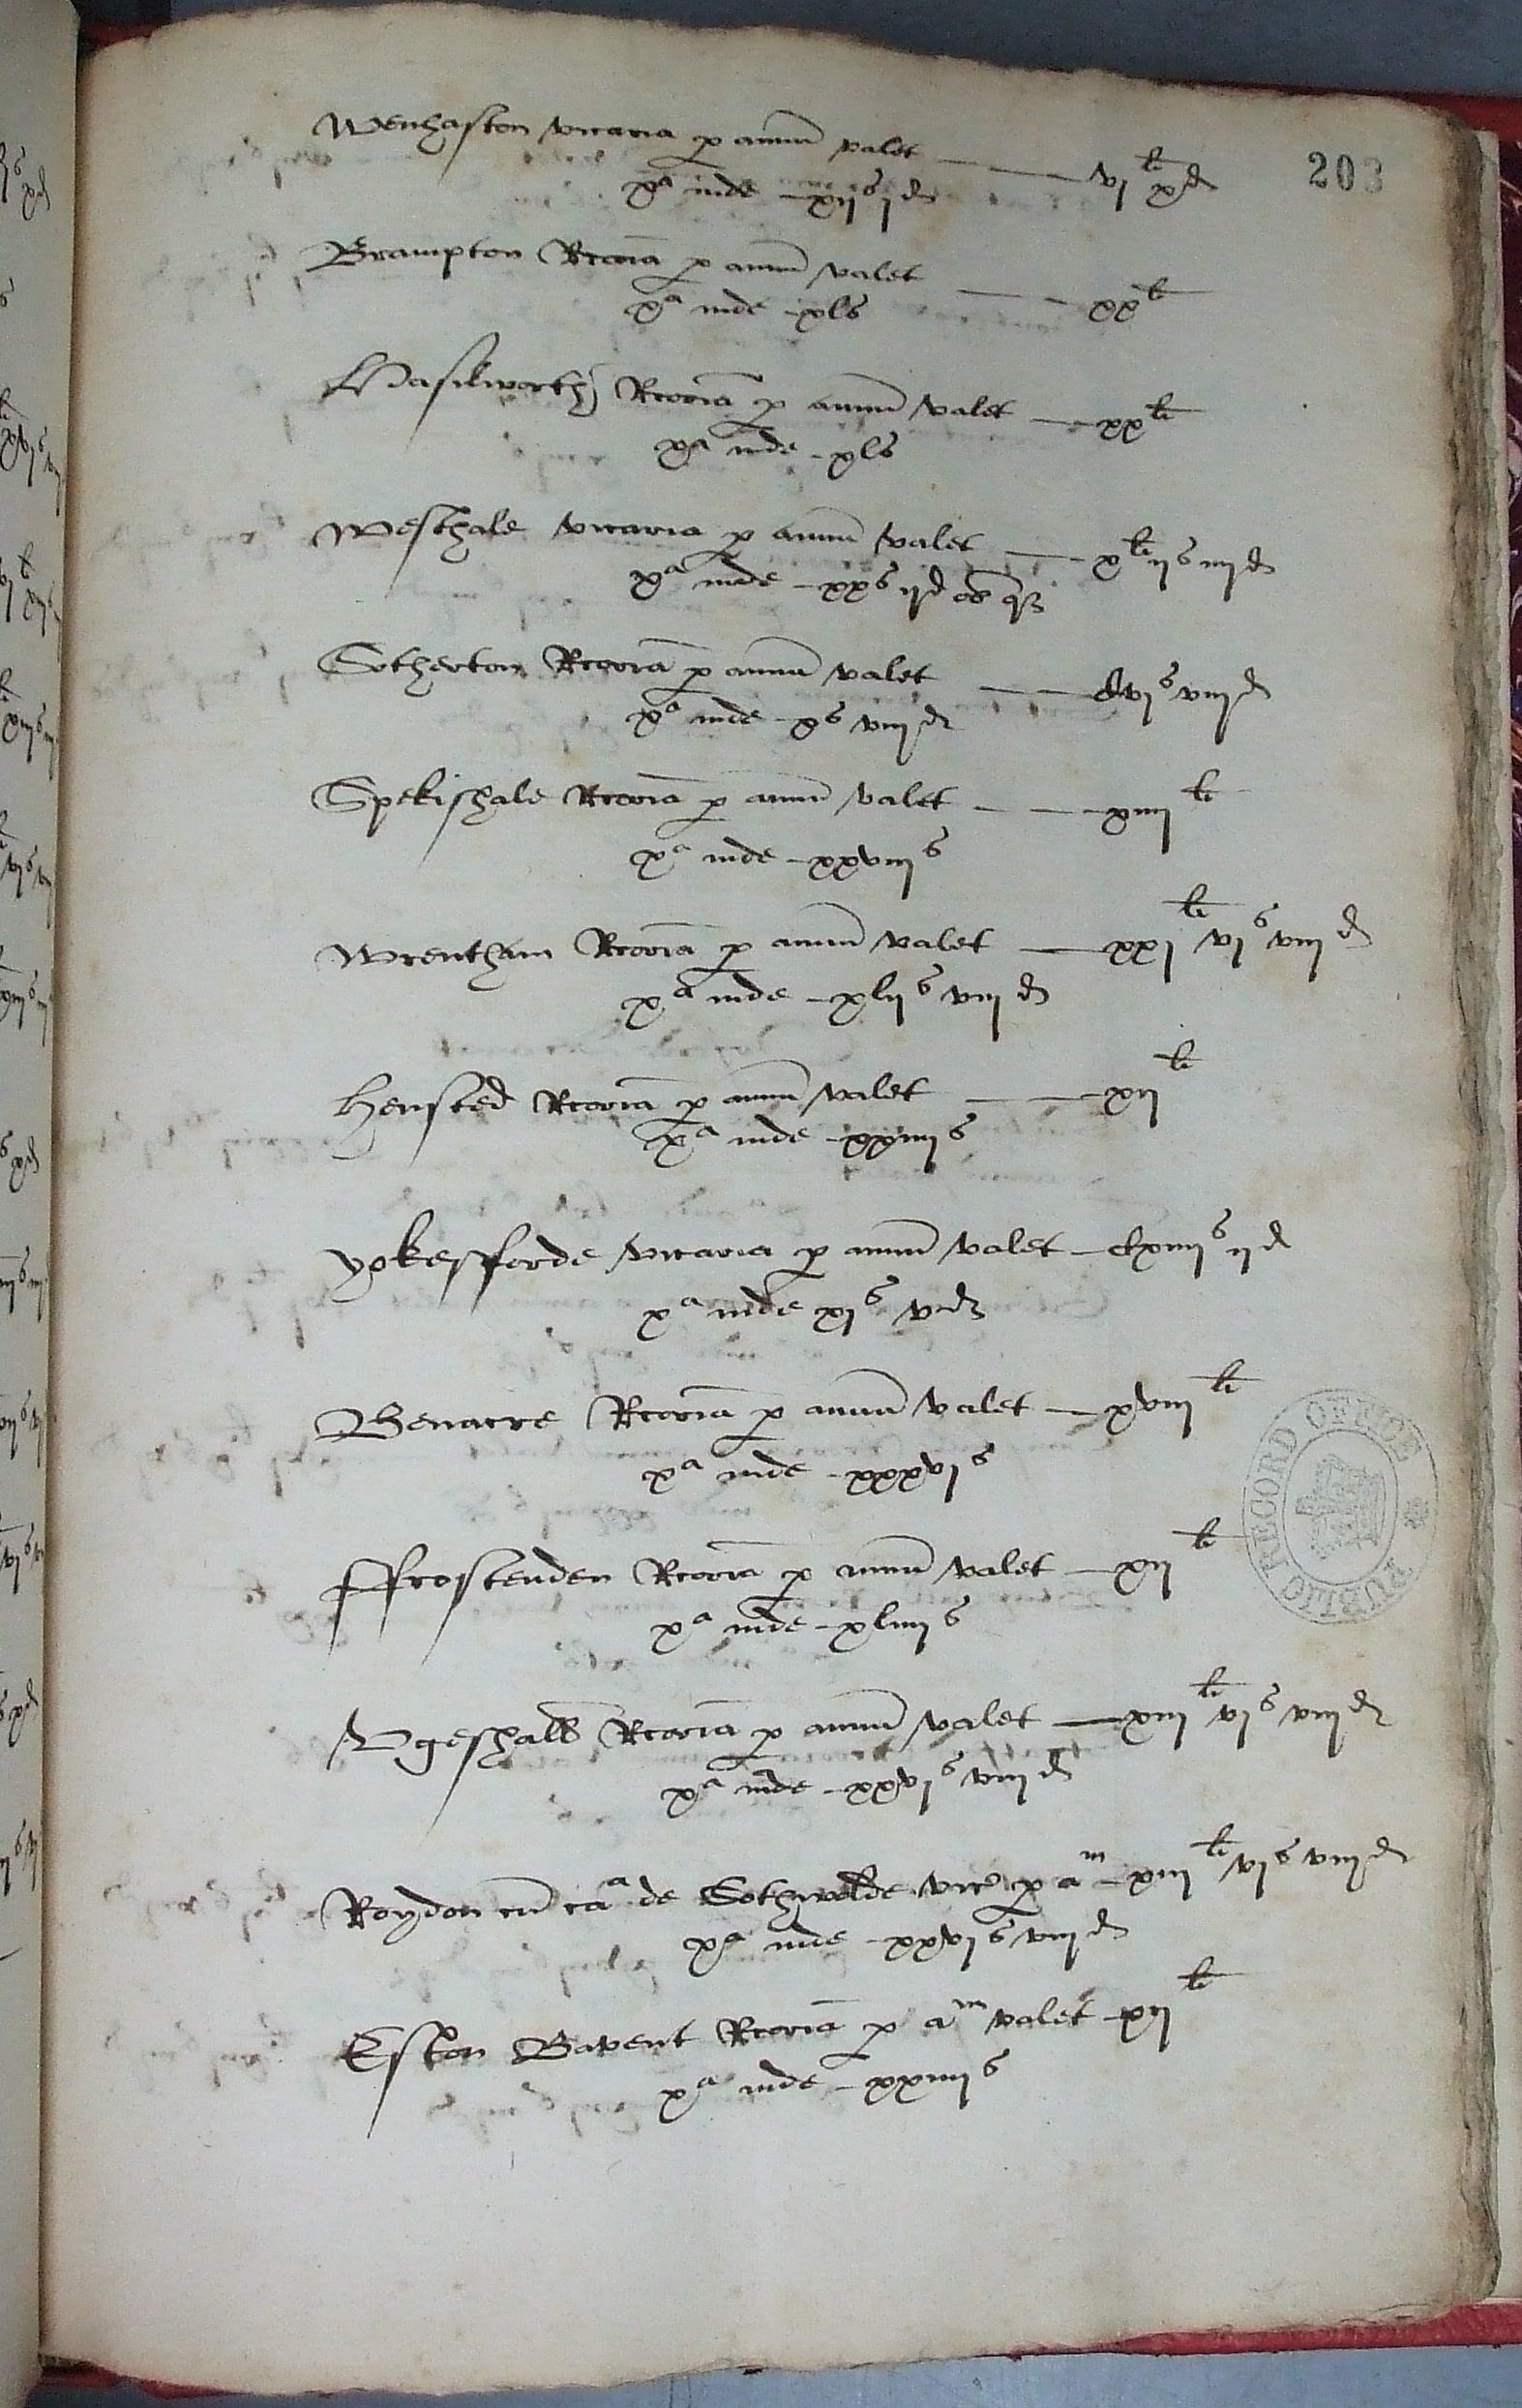 203
Wenhaston vicaria p annu valet — vj li xd
xa inde – xijs jd
Brampton Rcoria p annu valet — xx li
xa inde – xls
Hasilworth Rcoria p annu valet — xx li
xa inde – xls
Westhale vicaria p annu valet — x li ijs iijd
xa inde – xxs ijd ob q
Sotherton Rcoria p annu valet — cvjs viijd
xa inde – xs viijd
Spekishale Rcoria p annu valet — xiiij li
xa inde – xxviijs
Wrentham Rcoria p annu valet — xxj li vjs viijd
xa inde – xlijs viijd
Hensted Rcoria p annu valet — xij li
xa inde – xxiiijs
yoxesfforde vicaria p annu valet – cxiiijs ijd
xa inde xjs vd
Benacre Rcoria p annu valet — xviij li
xa inde – xxxvjs
ffrostenden Rcoria p annu valet – xij li
xa inde – xliiijs
Vgeshall Rcoria p annu valet — xiij li vjs viijd
xa inde – xxvjs viijd
Roydon cu ca de Sothwolde vic p am – xiij li vjs viijd
xa inde – xxvjs viijd
Eston Bavent Rcoria p am valet – xij li
xa inde – xxiiijs
PUBLIC RECORD OFFICE